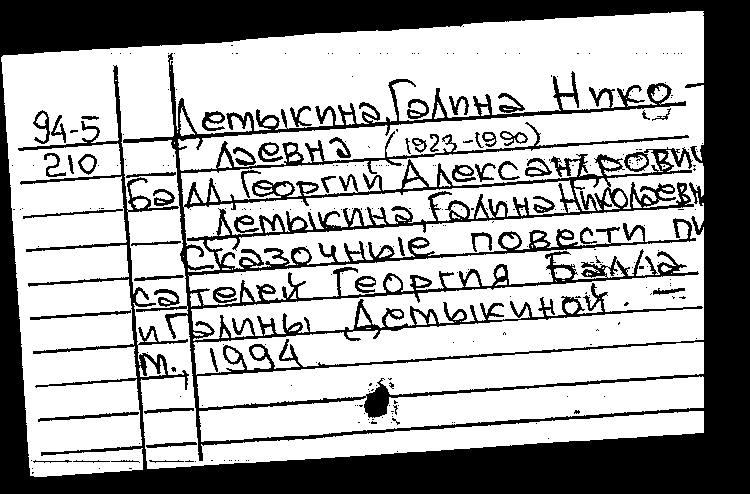 94-5
210
Демыкина, Галина Нико-
лаевна (1923-1990)
Балл, Георгий Александрович
Демыкина, Галина Николаевн
Сказочные повести пи
сателей Георгия Балла
и Галины Демыкиной. —
М., 1994